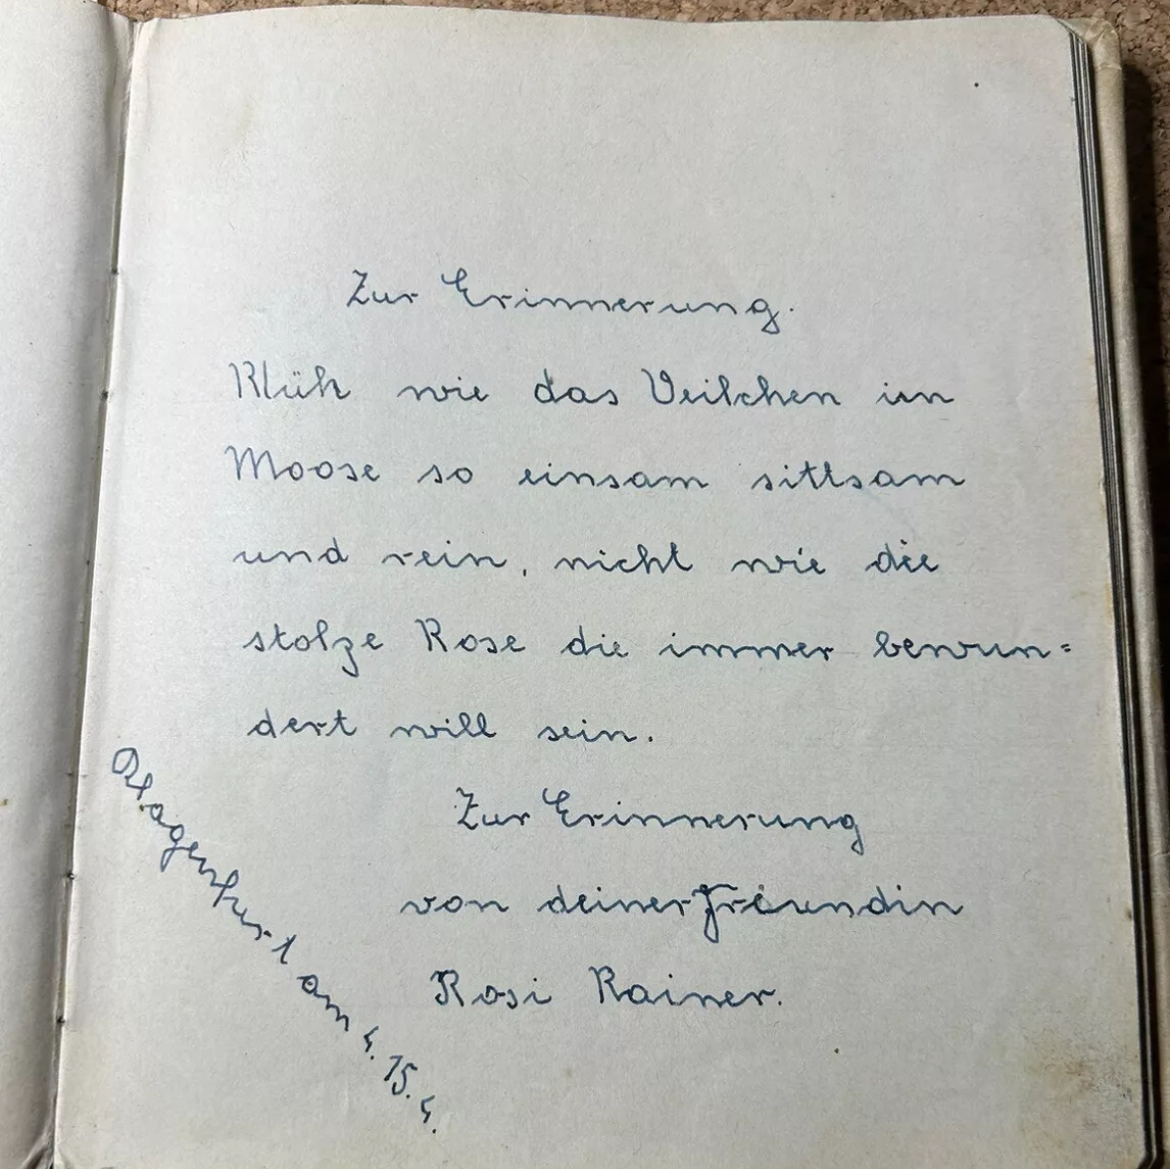 Zur Erinnerung.
Blüh wie das Veilchen im
Moose so einsam sittsam
und rein, nicht wie die
stolze Rose die immer bewun=
dert will sein.
Zur Erinnerung
von deiner Freundin
Rosi Rainer.
Klagenfurt am 4. 15. 4.